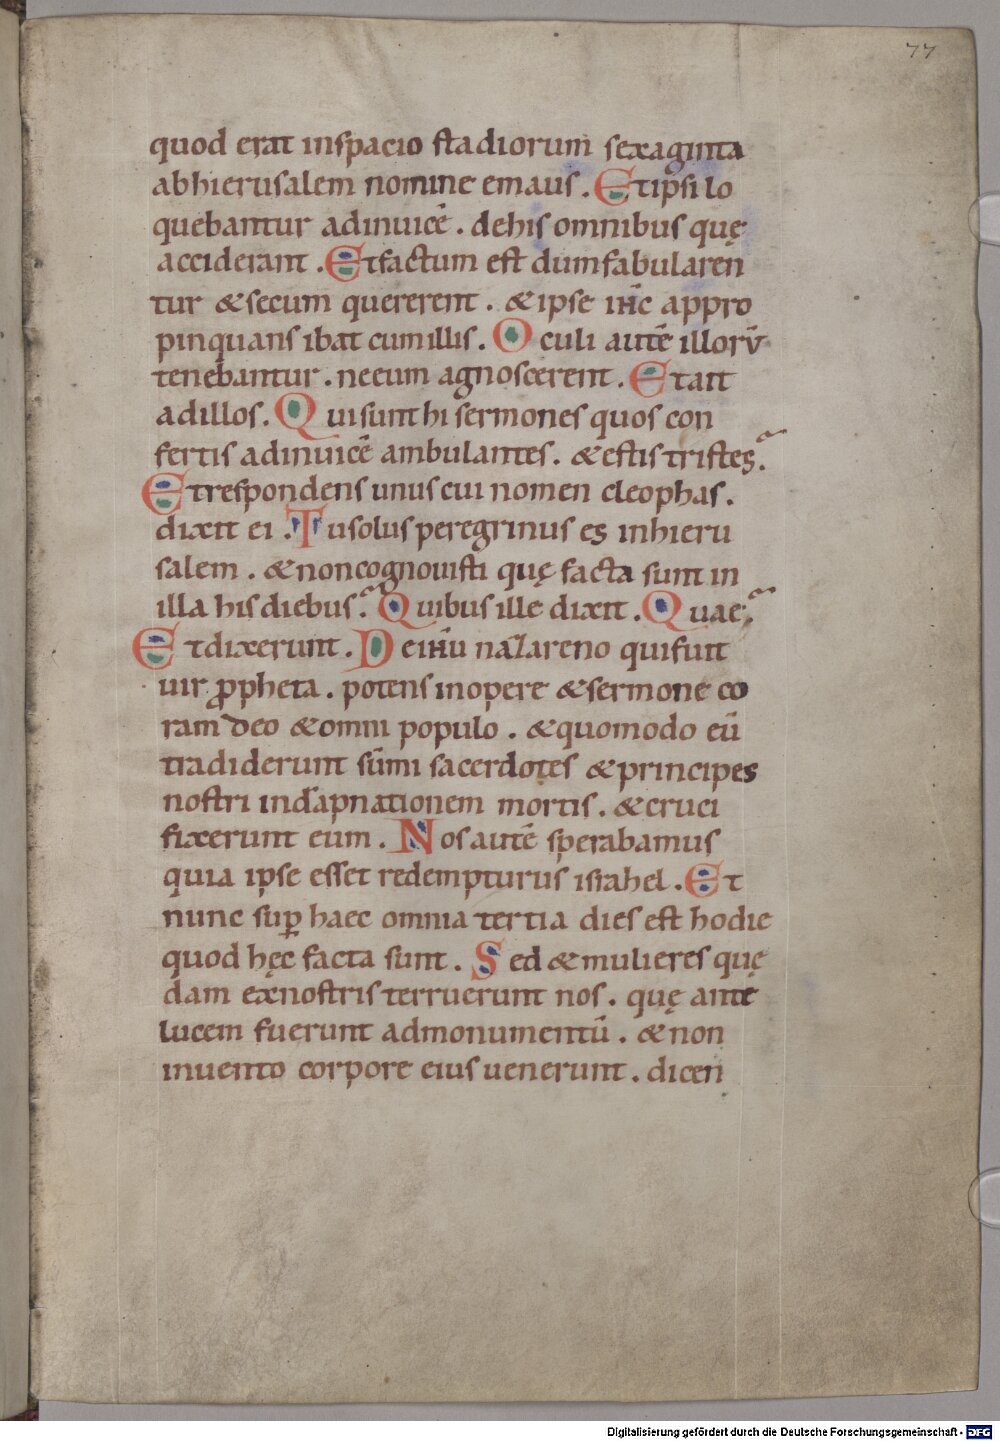 77
quod erat inspacio stadiorum sexaginta
abhierusalem nomine emaus. Et ipsi lo
quebantur adinuicē. dehis omnibus quę
acciderant. Et factum est dum fabularen
tur & secum quererent. & ipse ih̄c appro
pinquans ibat cum illis. Oculi autē illorū
tenebantur. ne eum agnoscerent. Et ait
adillos. Qui sunt hi sermones quos con
fertis adinuicē ambulantes. & estis tristes?
Et respondens unus cui nomen cleophas.
dixit ei. Tu solus peregrinus es inhieru
salem. & non cognouisti quę facta sunt in
illa his diebus? Quibus ille dixit. Quae?
Et dixerunt. De ih̄u nazareno qui fuit
uir ꝓpheta. potens inopere & sermone co
ram deo & omni populo. & quomodo eū
tradiderunt sūmi sacerdotes & principes
nostri indāpnationem mortis. & cruci
fixerunt eum. Nos autē sperabamus
quia ipse esset redempturus israhel. Et
nunc suꝑ haec omnia tertia dies est hodie
quod hęc facta sunt. Sed & mulieres quę
dam exnostris terruerunt nos. quę ante
lucem fuerunt admonumentū. & non
inuento corpore eius uenerunt. dicen
Digitalisierung gefördert durch die Deutsche Forschungsgemeinschaft - DFG